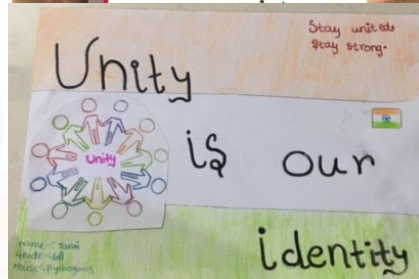 Stay united
Stay strong.
Unity
Unity
is our
identity
Name :- Tanu
Grade :-
House :-